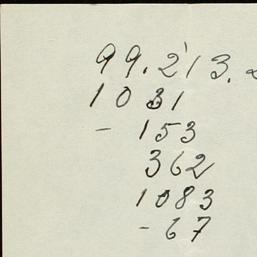 99.213.
1031
- 153
362
1083
- 67